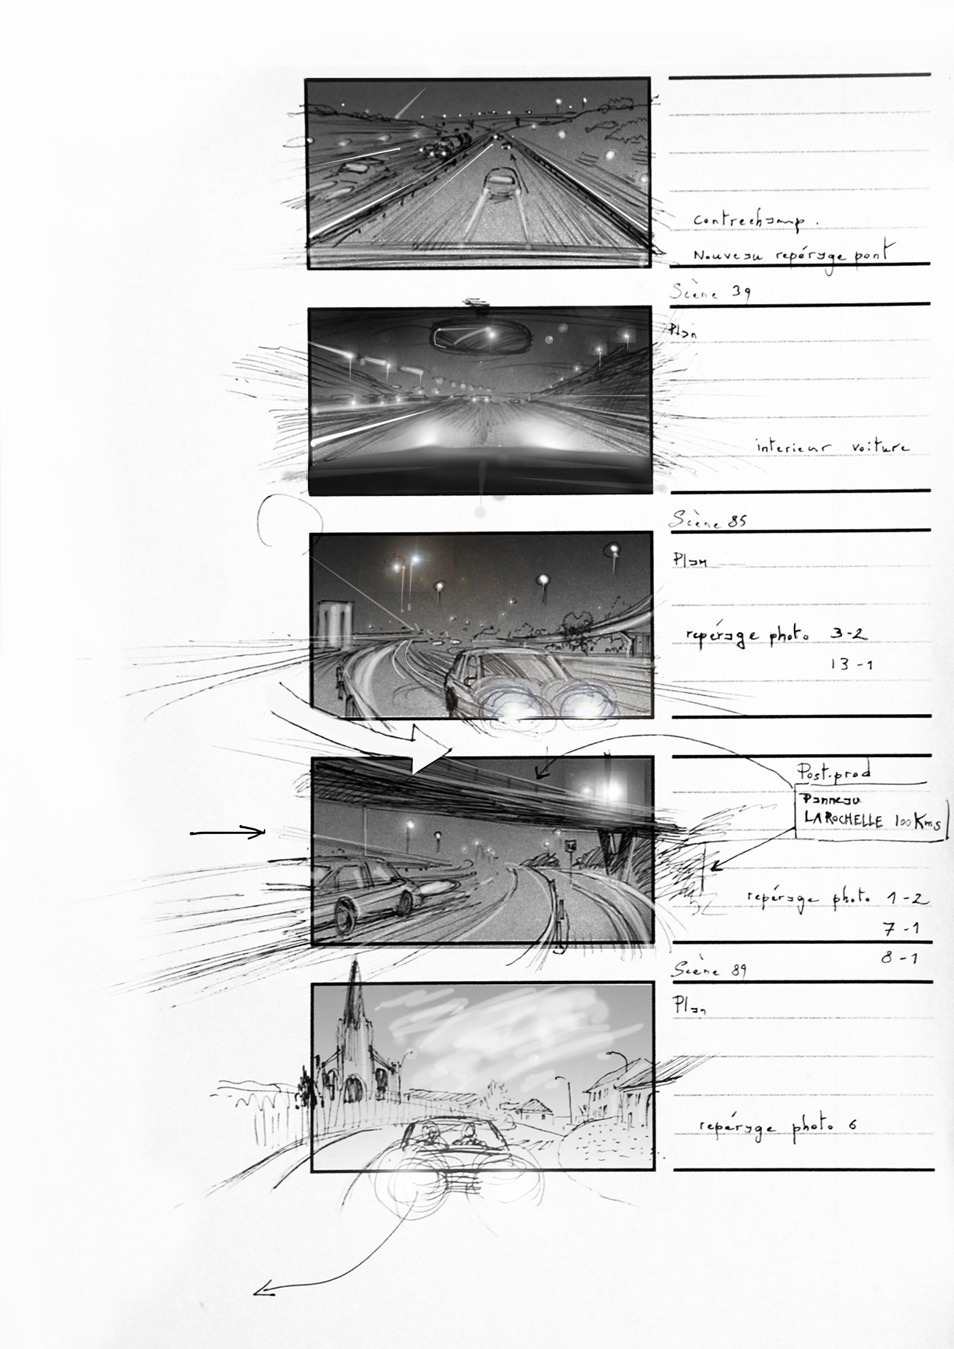 contrechamp.
Nouveau repérage pont
Scène 39
Plan
interieur voiture
Scène 85
Plan
repérage photo 3-2
13-1
Post-prod
Panneau
LA ROCHELLE 100 Kms
repérage photo 1-2
7-1
8-1
Scène 89
Plan
repérage photo 6